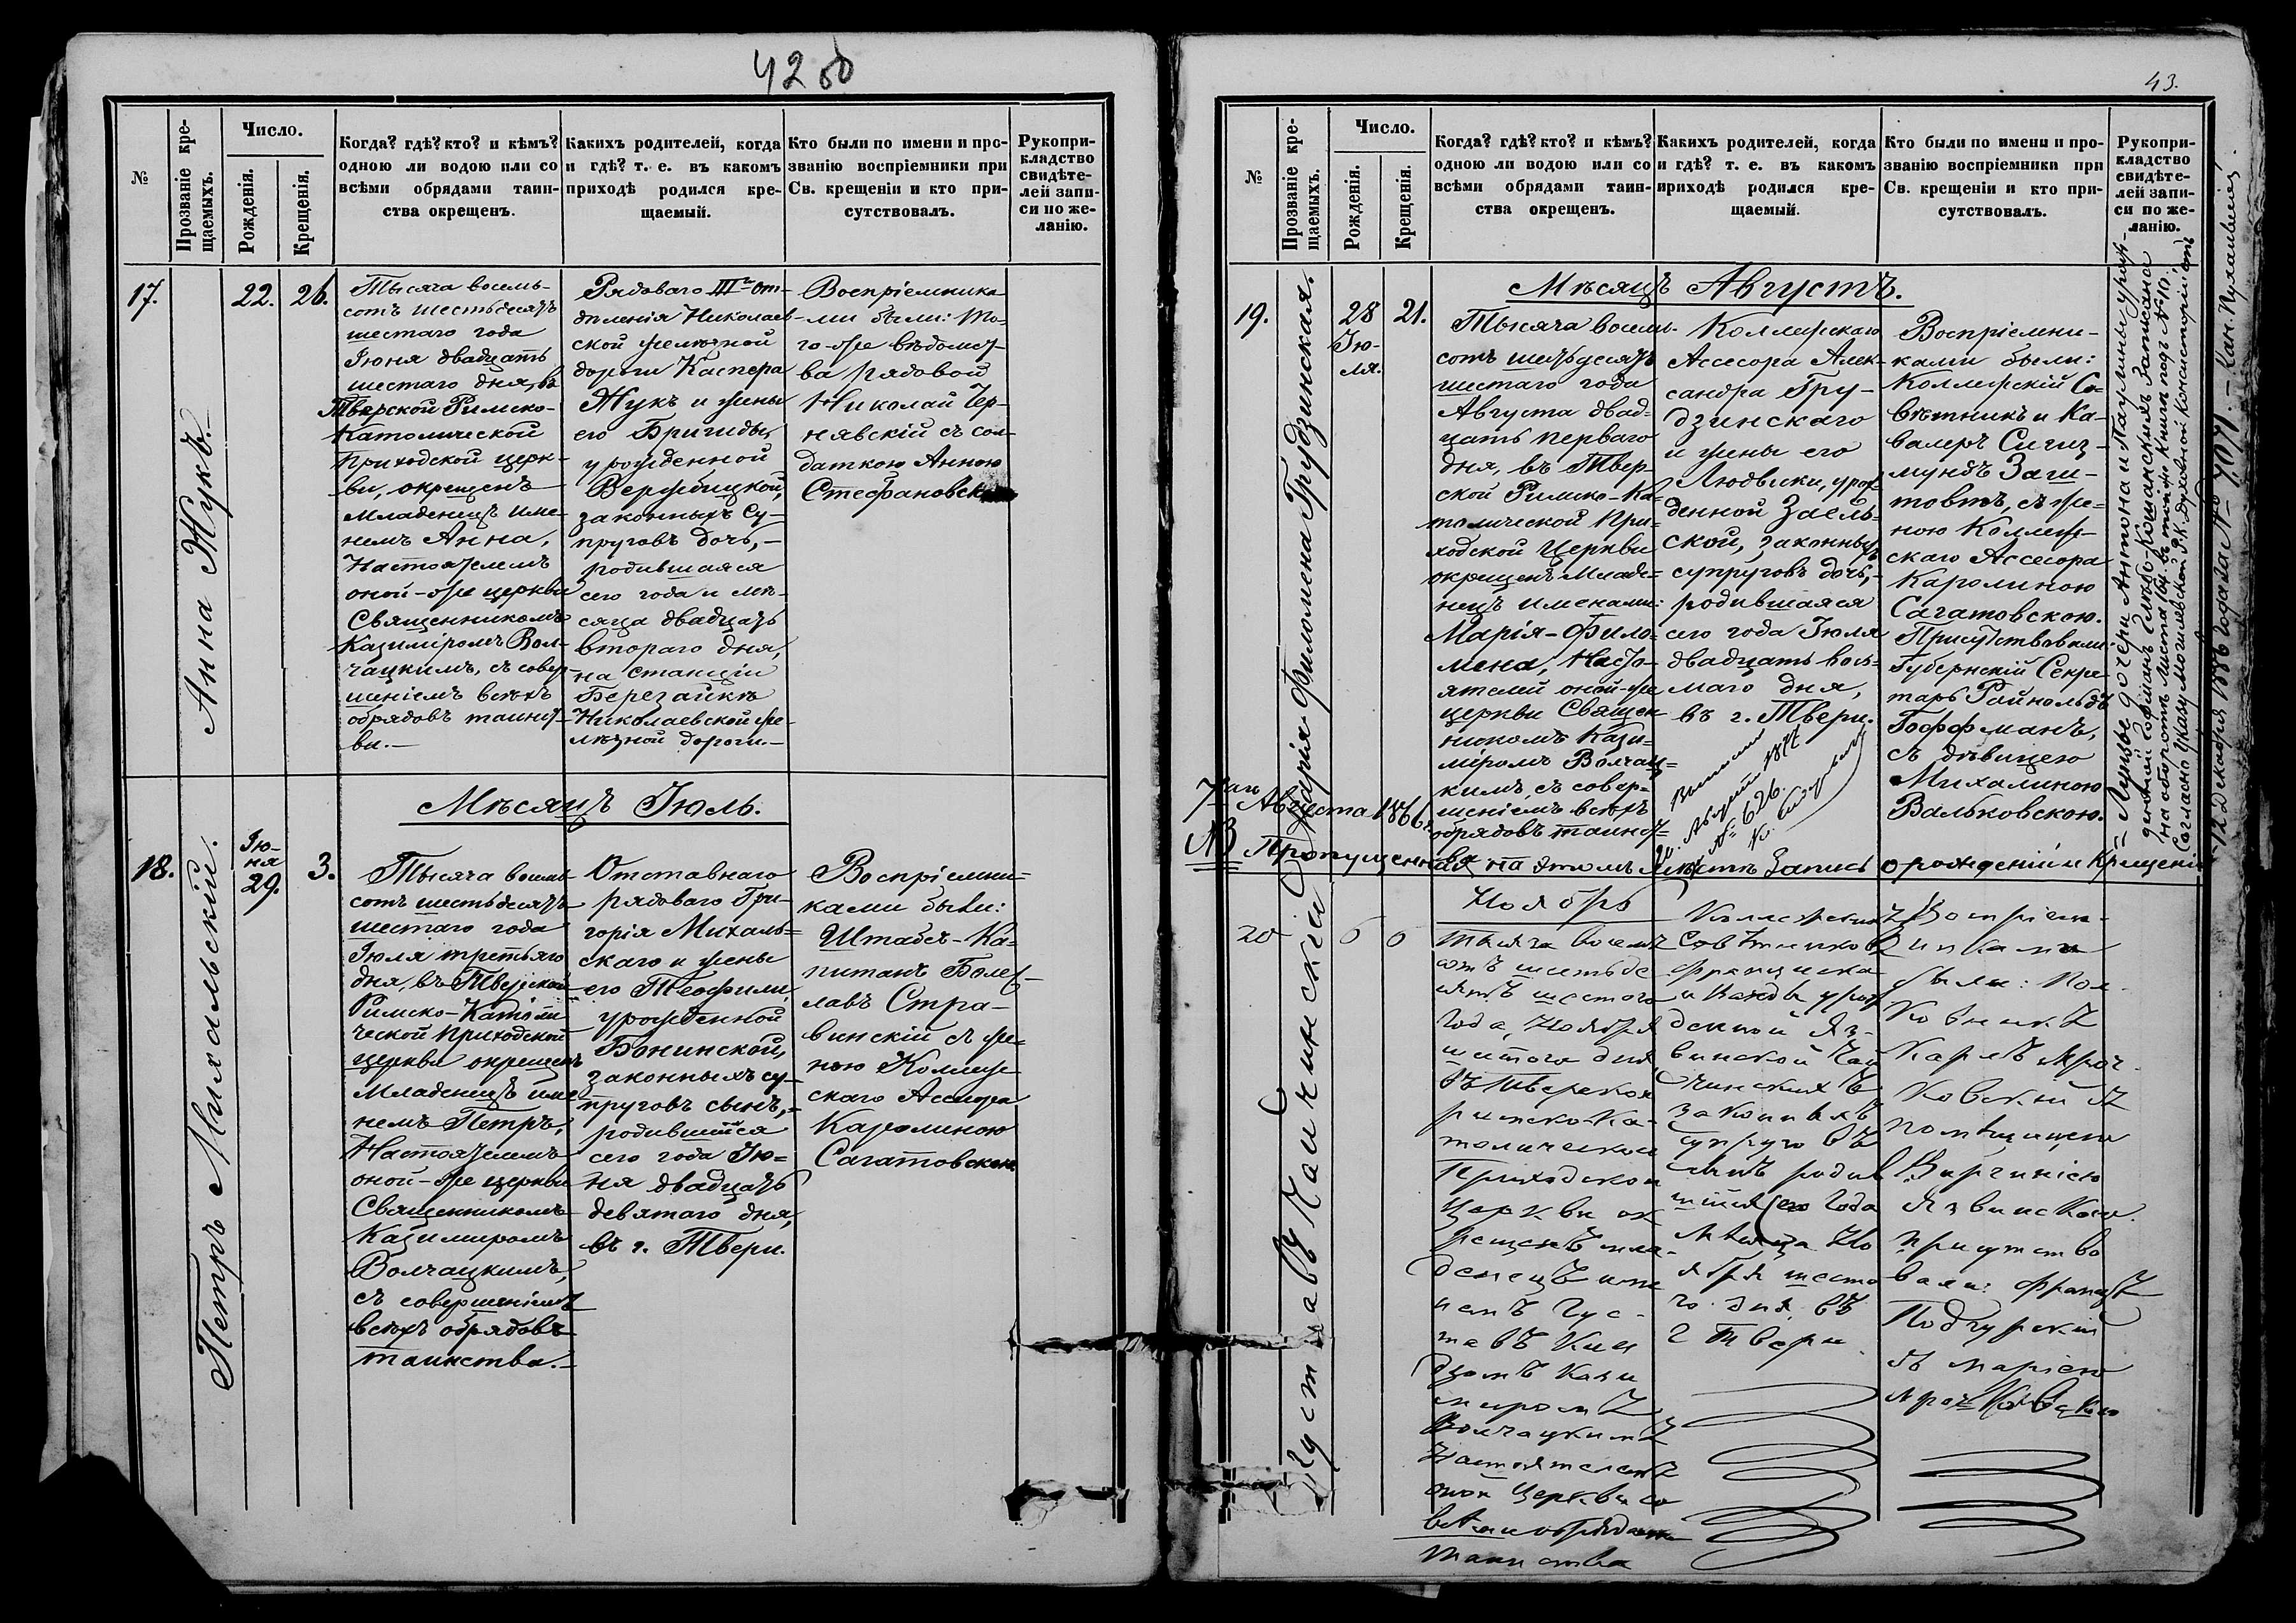 42 об
№
Прозваніе кре-
щаемыхъ.
Число.
Рожденія.
Крещенія.
Когда? гдѣ? кто? и кѣмъ?
одною ли водою или со
всѣми обрядами таин-
ства окрещенъ.
Какихъ родителей, когда
и гдѣ? т. е. въ какомъ
приходѣ родился кре-
щаемый.
Кто были по имени и про-
званію воспріемники при
Св. крещеніи и кто при-
сутствовалъ.
Рукопри-
кладство
свидѣте-
лей запи-
си по же-
ланію.
17.
Анна Жукъ.
22.
26.
Тысяча восемь-
сотъ шестьдесятъ
шестаго года
Іюня двадцать
шестаго дня, въ
Тверской Римско-
Католической
Приходской церк-
ви, окрещенъ
Младенецъ име-
немъ Анна,
Настоятелемъ
оной-же церкви
Священникомъ
Казиміромъ Вол-
чацкимъ, съ совер-
шеніемъ всѣхъ
обрядовъ таинст-
ва.—
Рядоваго IIIго От-
дѣленія Николаев-
ской желѣзной
дороги Каспера
Жукъ и жены
его Бригиды,
урожденной
Вержбицкой,
законныхъ Су-
пруговъ дочь,—
родившаяся
сего года и мѣ-
сяца двадцать
втораго дня,
на станціи
Березайкѣ
Николаевской же-
лѣзной дороги.—
Воспріемника-
ми были: То-
го-же вѣдомст-
ва рядовой
Николай Чер-
нявскій съ сол-
даткою Анною
Стефановск
Мѣсяцъ Іюль.
18.
Петръ Михальскій.
Ію-
ня
29.
3.
Тысяча восемь-
сотъ шестьдесятъ
шестаго года
Іюля третьяго
дня, въ Тверской
Римско-Католи-
ческой Приходской
церкви окрещенъ
Младенецъ име-
немъ Петръ,
Настоятелемъ
оной-же церкви
Священникомъ
Казимиромъ
Волчацкимъ,
съ совершеніемъ
всѣхъ обрядовъ
таинства.—
Отставнаго
рядоваго Гри-
горія Михаль-
скаго и жены
его Теофили,
урожденной
Бонинской,
законныхъ су-
пруговъ сынъ,-
родившійся
сего года Ію-
ня двадцать
девятаго дня,
въ г. Твери.
Воспріемни-
ками были:
Штабсъ-Ка-
питанъ Болес-
лавъ Стра-
винскій съ же-
ною Коллеж-
скаго Ассесора
Каролиною
Сагатовскою
43.
№
Прозваніе кре-
щаемыхъ.
Число.
Рожденія.
Крещенія.
Когда? гдѣ? кто? и кѣмъ?
одною ли водою или со
всѣми обрядами таин-
ства окрещенъ.
Какихъ родителей, когда
и гдѣ? т. е. въ какомъ
приходѣ родился кре-
щаемый.
Кто были по имени и про-
званію воспріемники при
Св. крещеніи и кто при-
сутствовалъ.
Рукопри-
кладство
свидѣте-
лей запи-
си по же-
ланію.
Мѣсяцъ Августъ.
19.
Марія-Филомена Грудзинская.
28
Ію-
ля.
21.
Тысяча восемь-
сотъ шестьдесятъ
шестаго года
Августа двад-
цать перваго
дня, въ Твер-
ской Римско-Ка-
толической При-
ходской Церкви
окрещенъ Младе-
нецъ именами:
Марія-Фило-
мена, Насто-
ятелемъ оной-же
церкви Священ-
никомъ Кази-
міромъ Волчац-
кимъ, съ совер-
шеніемъ всѣхъ
обрядовъ таинст-
ва
Коллежскаго
Ассесора Алек-
сандра Гру-
дзинскаго
и жены его
Людвики, урож-
денной Заель-
ской, законныхъ
супруговъ дочь,-
родившаяся
сего года Іюля
двадцать вось-
маго дня,
въ г. Твери.
Августа 1874
№ 626.
Воспріемни-
ками были:
Коллежскій Со-
вѣтникъ и Ка-
валеръ Сигиз-
мундъ Заги-
товтъ, съ же-
ною Коллеж-
скаго Ассесора
Каролиною
Сагатовскою.
Присутствовали:
Губернскій Секре-
тарь Райнольдъ
Гоффманъ,
съ дѣвицею
Михалиною
Вальковскою.
7го Августа 1866 г.
NB Пропущенная на этомъ Листѣ Запись о рожденіи и Крещеніи
дочери Антона и Паулины урож-
денной Гофманъ
на оборотѣ Листа 164 въ той же Книгѣ подъ № 10.
Согласно Указу Могилевской Р.К. Духовной Консисторіи отъ
12 Декабря 1886 года за № 7071.
Ноябрь
20
6
6
Тысяча восемь
сотъ шестьде
сятъ шестого
Года, Ноября
шестого дня
въ Тверской
римско-ка-
толической
Приходской
Церкви ок
рещенъ мла-
денецъ име
немъ Гус-
тавъ Ксен
дзомъ Кази
миромъ
Волчацкимъ
Настоятелемъ
оной Церкви со
всѣми обрядами
Таинства
Коллежскихъ
Совѣтников
Франциска
и Ванды урож
денной Яз-
винской
законныхъ
супруговъ
сынъ родив
шійся сего Года
Мѣсяца Но
ября шесто
го дня въ
г Твери
Воспріем-
никами
были: Пол-
ковникъ
Карлъ Мроч-
ковскій съ
помѣщицею
Виргиніею
Язвинскою.
Присутство
вали: Францъ
Подгурскій
съ Маріею
Мрочковскою